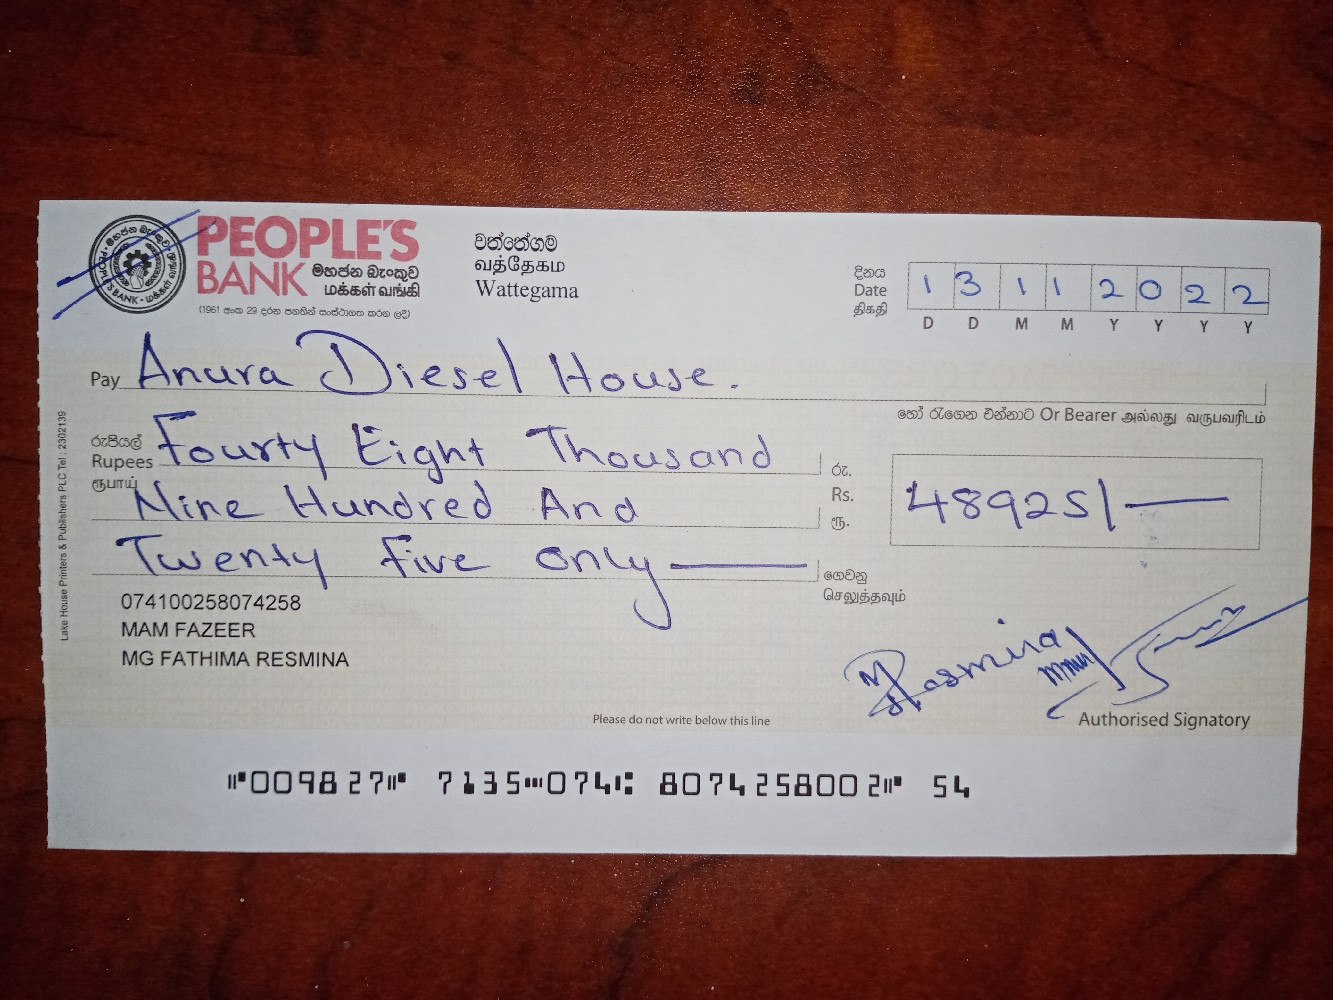 PEOPLE'S
BANK මහජන බැංකුව
மக்கள் வங்கி
(1961 අංක 29 දරන පනතින් සංස්ථාගත කරන ලදී)
වත්තේගම
வத்தேகம
Wattegama
දිනය
Date
திகதி
1 3 1 1 2 0 2 2
D D M M Y Y Y Y
Pay Anura Diesel House.
හෝ රැගෙන එන්නාට Or Bearer அல்லது வருபவரிடம்
රුපියල්
Rupees
ரூபாய்
Fourty Eight Thousand
Nine Hundred And
Twenty five only
රු.
Rs.
ரூ.
48925/—
ගෙවනු
செலுத்தவும்
074100258074258
MAM FAZEER
MG FATHIMA RESMINA
Resmina
Please do not write below this line
Authorised Signatory
Lake House Printers & Publishers PLC Tel : 2302139
⑈009827⑈ 7135⑉074⑆ 8074258002⑈ 54